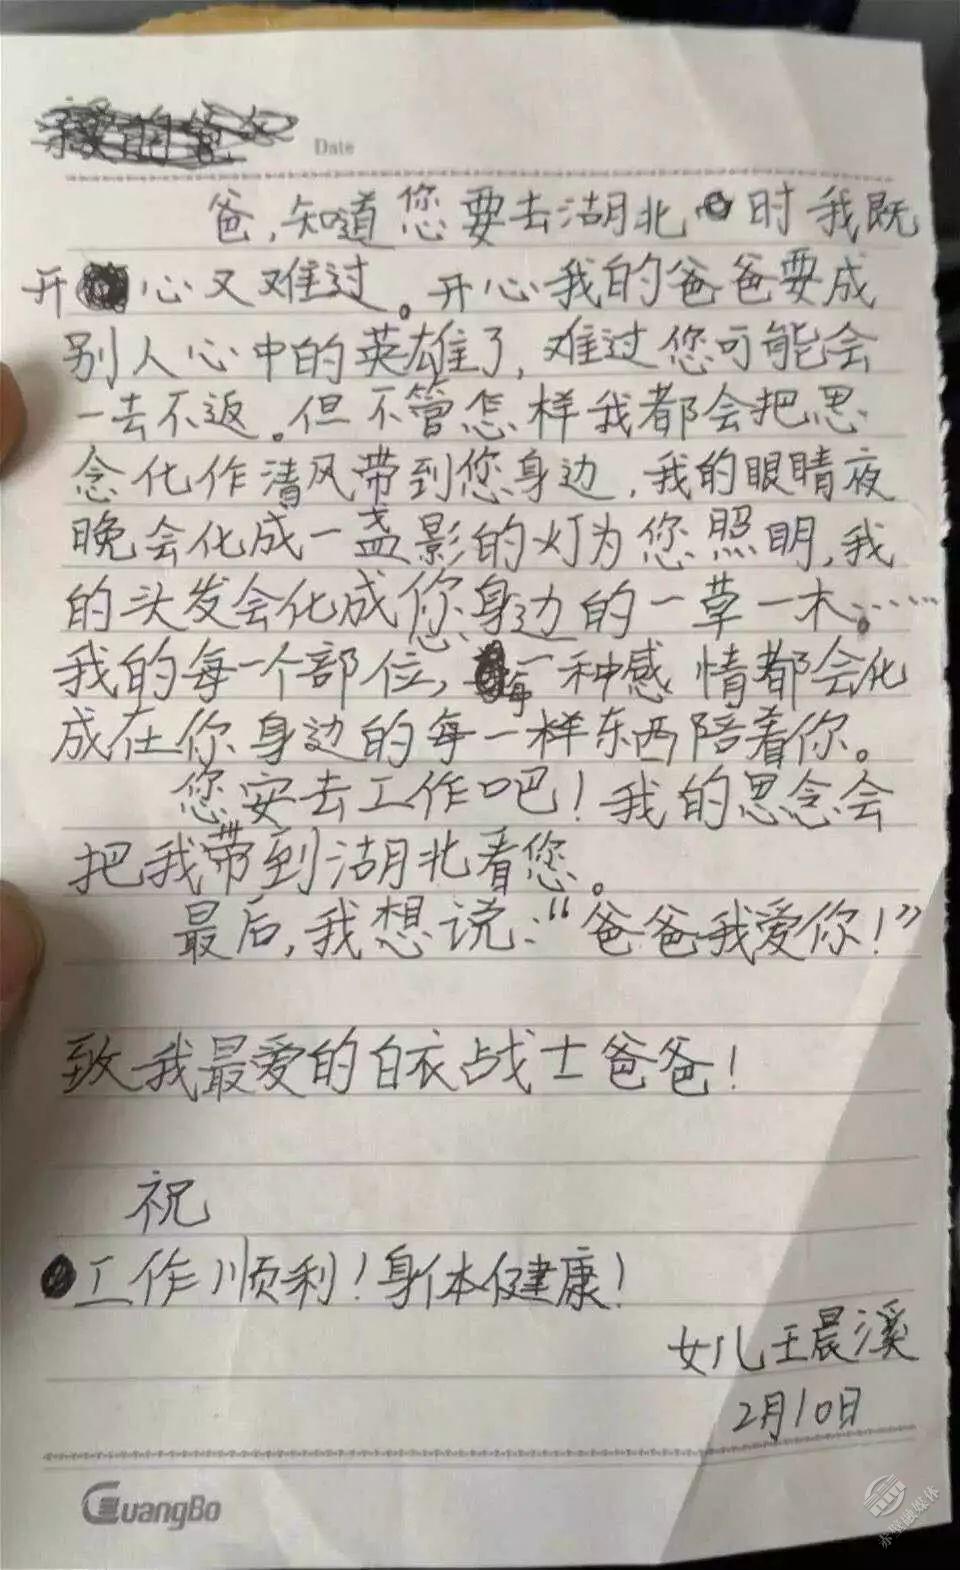 Date
爸,知道您要去湖北时我既
开心又难过。开心我的爸爸要成
别人心中的英雄了,难过您可能会
一去不返。但不管怎样我都会把思
念化作清风带到您身边,我的眼睛夜
晚会化成一盏影的灯为您照明,我
的头发会化成您身边的一草一木。……
我的每一个部位,每一种感情都会化
成在你身边的每一样东西陪着你。
您安去工作吧!我的思念会
把我带到湖北看您。
最后,我想说:“爸爸我爱你!”
致我最爱的白衣战士爸爸!
祝
工作顺利!身体健康!
女儿王晨溪
2月10日
GuangBo
赤壁融媒体